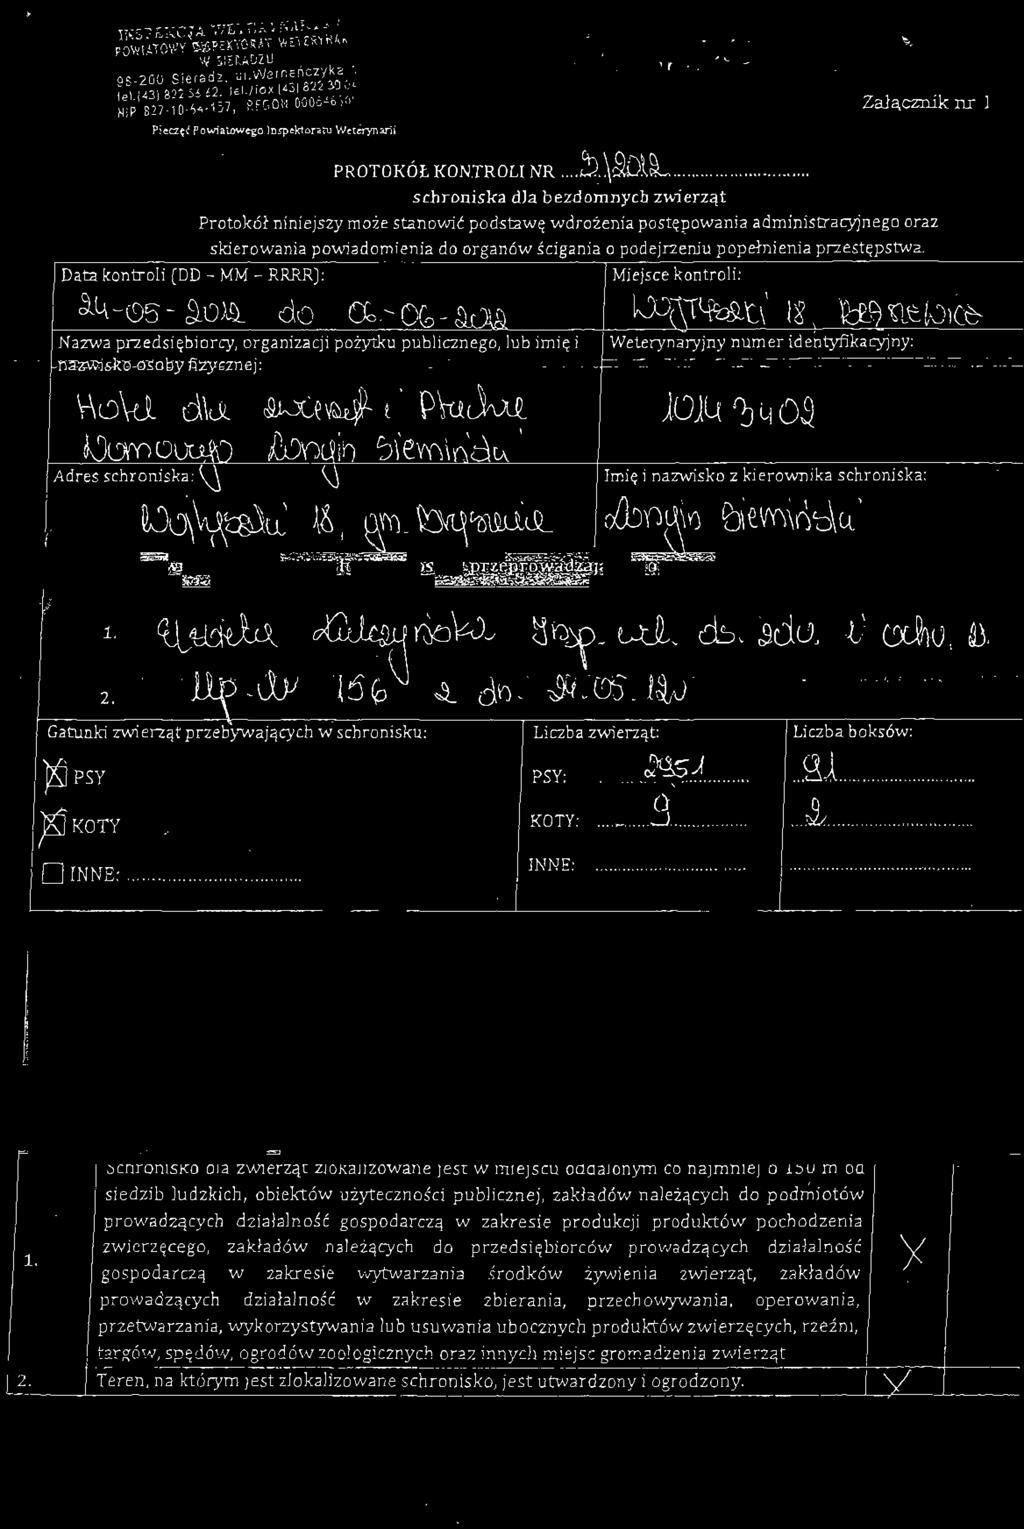 INSPEKCJA WETERYNARYJNA
POWIATOWY INSPEKTORAT WETERYNARII
W SIERADZU
98-200 Sieradz, ul. Warneńczyka
tel.(43) 822 tel./fax (43) 822
NIP 827-10-54-157, REGON
Pieczęć Powiatowego Inspektoratu Weterynarii
Załącznik nr 1
PROTOKÓŁ KONTROLI NR ....5/2012....
schroniska dla bezdomnych zwierząt
Protokół niniejszy może stanowić podstawę wdrożenia postępowania administracyjnego oraz
skierowania powiadomienia do organów ścigania o podejrzeniu popełnienia przestępstwa.
Data kontroli (DD – MM – RRRR):
24-05-2012 do 06-06-2012
Miejsce kontroli:
Wojtyszki 18, Brąszewice
Nazwa przedsiębiorcy, organizacji pożytku publicznego, lub imię i
nazwisko osoby fizycznej:
Hotel dla zwierząt i Ptactwa
Domowego Longin Siemiński
Weterynaryjny numer identyfikacyjny:
10143402
Adres schroniska:
Wojtyszki 18, gm. Brąszewice
Imię i nazwisko z kierownika schroniska:
Longin Siemiński
przeprowadzaj
1. Elżbieta Insp. wet. ds. zdr. i ochr. z.
2. Up. nr 156 z dn. 24.05.12r
Gatunki zwierząt przebywających w schronisku:
Liczba zwierząt:
Liczba boksów:
PSY
PSY: 2951
91
KOTY
KOTY: 9
2
INNE:
INNE:
1.
Schronisko dla zwierząt zlokalizowane jest w miejscu oddalonym co najmniej o 150 m od
siedzib ludzkich, obiektów użyteczności publicznej, zakładów należących do podmiotów
prowadzących działalność gospodarczą w zakresie produkcji produktów pochodzenia
zwierzęcego, zakładów należących do przedsiębiorców prowadzących działalność
gospodarczą w zakresie wytwarzania środków żywienia zwierząt, zakładów
prowadzących działalność w zakresie zbierania, przechowywania, operowania,
przetwarzania, wykorzystywania lub usuwania ubocznych produktów zwierzęcych, rzeźni,
targów, spędów, ogrodów zoologicznych oraz innych miejsc gromadzenia zwierząt
X
2. Teren, na którym jest zlokalizowane schronisko, jest utwardzony i ogrodzony.
X